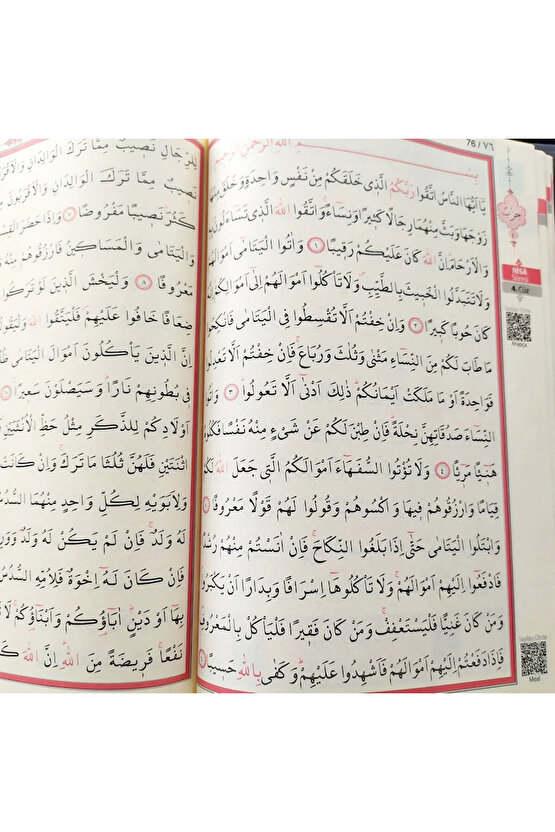 ٧٦ / 76
بِسْمِ اللهِ الرَّحْمٰنِ الرَّحِيمِ
يَٓا اَيُّهَا النَّاسُ اتَّقُوا رَبَّكُمُ الَّذ۪ي خَلَقَكُمْ مِنْ نَفْسٍ وَاحِدَةٍ وَخَلَقَ مِنْهَا
زَوْجَهَا وَبَثَّ مِنْهُمَا رِجَالًا كَث۪يرًا وَنِسَٓاءًۚ وَاتَّقُوا اللهَ الَّذ۪ي تَسَٓاءَلُونَ بِه۪
وَالْاَرْحَامَۜ اِنَّ اللهَ كَانَ عَلَيْكُمْ رَق۪يبًا ﴿١﴾ وَاٰتُوا الْيَتَامٰٓى اَمْوَالَهُمْ
وَلَا تَتَبَدَّلُوا الْخَب۪يثَ بِالطَّيِّبِۖ وَلَا تَأْكُلُٓوا اَمْوَالَهُمْ اِلٰٓى اَمْوَالِكُمْۜ اِنَّهُ
كَانَ حُوبًا كَب۪يرًا ﴿٢﴾ وَاِنْ خِفْتُمْ اَلَّا تُقْسِطُوا فِي الْيَتَامٰى فَانْكِحُوا
مَا طَابَ لَكُمْ مِنَ النِّسَٓاءِ مَثْنٰى وَثُلٰثَ وَرُبَاعَۚ فَاِنْ خِفْتُمْ اَلَّا تَعْدِلُوا
فَوَاحِدَةً اَوْ مَا مَلَكَتْ اَيْمَانُكُمْۜ ذٰلِكَ اَدْنٰٓى اَلَّا تَعُولُوا ﴿٣﴾ وَاٰتُوا
النِّسَٓاءَ صَدُقَاتِهِنَّ نِحْلَةًۜ فَاِنْ طِبْنَ لَكُمْ عَنْ شَيْءٍ مِنْهُ نَفْسًا فَكُلُوهُ
هَن۪ٓيـًٔا مَر۪ٓيـًٔا ﴿٤﴾ وَلَا تُؤْتُوا السُّفَهَٓاءَ اَمْوَالَكُمُ الَّت۪ي جَعَلَ اللهُ لَكُمْ
قِيَامًا وَارْزُقُوهُمْ ف۪يهَا وَاكْسُوهُمْ وَقُولُوا لَهُمْ قَوْلًا مَعْرُوفًا ﴿٥﴾
وَابْتَلُوا الْيَتَامٰى حَتّٰٓى اِذَا بَلَغُوا النِّكَاحَۚ فَاِنْ اٰنَسْتُمْ مِنْهُمْ رُشْدًا
فَادْفَعُٓوا اِلَيْهِمْ اَمْوَالَهُمْۚ وَلَا تَأْكُلُوهَٓا اِسْرَافًا وَبِدَارًا اَنْ يَكْبَرُوا
وَمَنْ كَانَ غَنِيًّا فَلْيَسْتَعْفِفْۚ وَمَنْ كَانَ فَق۪يرًا فَلْيَأْكُلْ بِالْمَعْرُوفِ
فَاِذَا دَفَعْتُمْ اِلَيْهِمْ اَمْوَالَهُمْ فَاَشْهِدُوا عَلَيْهِمْۜ وَكَفٰى بِاللهِ حَس۪يبًا ﴿٦﴾
حزب
NİSA
Sûresi
4. Cüz
Arapça
Meal
لِلرِّجَالِ نَص۪يبٌ مِمَّا تَرَكَ الْوَالِدَانِ وَالْاَقْرَبُونَ
نَص۪يبٌ مِمَّا تَرَكَ الْوَالِدَانِ وَالْاَقْرَبُونَ
كَثُرَۜ نَص۪يبًا مَفْرُوضًا ﴿٧﴾ وَاِذَا حَضَرَ الْقِسْمَةَ
وَالْيَتَامٰى وَالْمَسَاك۪ينُ فَارْزُقُوهُمْ مِنْهُ
مَعْرُوفًا ﴿٨﴾ وَلْيَخْشَ الَّذ۪ينَ لَوْ تَرَكُوا
ضِعَافًا خَافُوا عَلَيْهِمْۖ فَلْيَتَّقُوا اللهَ وَلْيَقُولُوا
اِنَّ الَّذ۪ينَ يَأْكُلُونَ اَمْوَالَ الْيَتَامٰى
ف۪ي بُطُونِهِمْ نَارًاۜ وَسَيَصْلَوْنَ سَع۪يرًا ﴿١٠﴾
اَوْلَادِكُمْ لِلذَّكَرِ مِثْلُ حَظِّ الْاُنْثَيَيْنِۚ
اثْنَتَيْنِ فَلَهُنَّ ثُلُثَا مَا تَرَكَۚ وَاِنْ كَانَتْ
وَلِاَبَوَيْهِ لِكُلِّ وَاحِدٍ مِنْهُمَا السُّدُسُ
لَهُ وَلَدٌۚ فَاِنْ لَمْ يَكُنْ لَهُ وَلَدٌ
فَاِنْ كَانَ لَهُٓ اِخْوَةٌ فَلِاُمِّهِ السُّدُسُ
بِهَٓا اَوْ دَيْنٍۜ اٰبَٓاؤُ۬كُمْ وَاَبْنَٓاؤُ۬كُمْۚ لَا
نَفْعًاۜ فَر۪يضَةً مِنَ اللهِۜ اِنَّ اللهَ